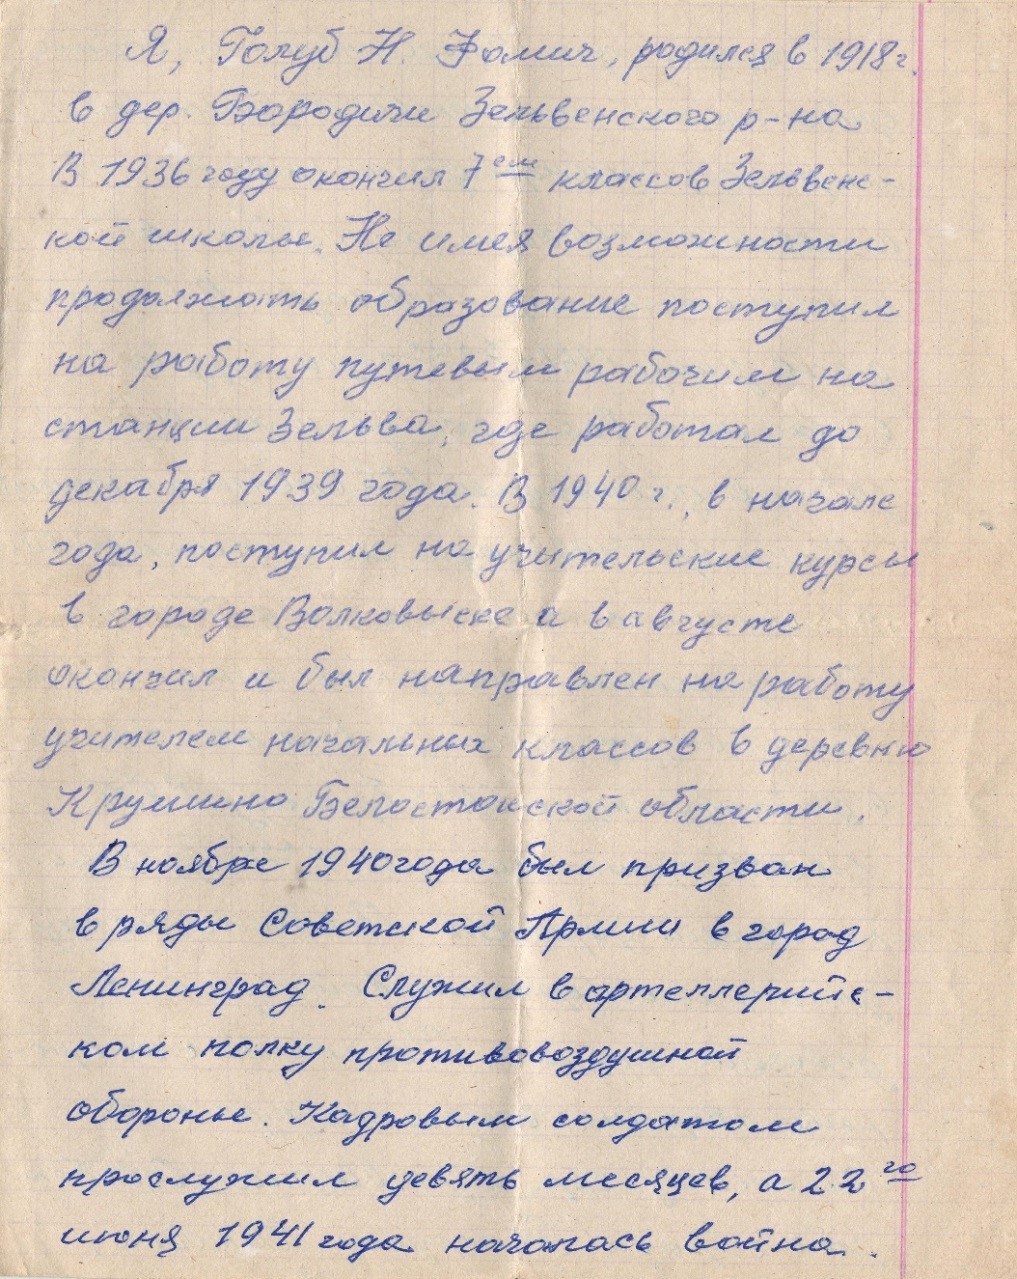 Я, Голуб Н. Фомич, родился в 1918 г.
в дер. Бородичи Зельвенского р-на
В 1936 году окончил 7ем классов Зельвенс-
кой школы. Не имея возможности
продолжать образование поступил
на работу путевым рабочим на
станции Зельва, где работал до
декабря 1939 года. В 1940 г., в начале
года, поступил на учительские курсы
в городе Волковыске а в августе
окончил и был направлен на работу
учителем начальных классов в деревню
Крушино Белостокской области.
В ноябре 1940 года был призван
в ряды Советской Армии в город
Ленинград. Служил в артеллерийс-
ком полку противовоздушной
обороны. Кадровым солдатом
прослужил девять месяцев, а 22го
июня 1941 года началась война.